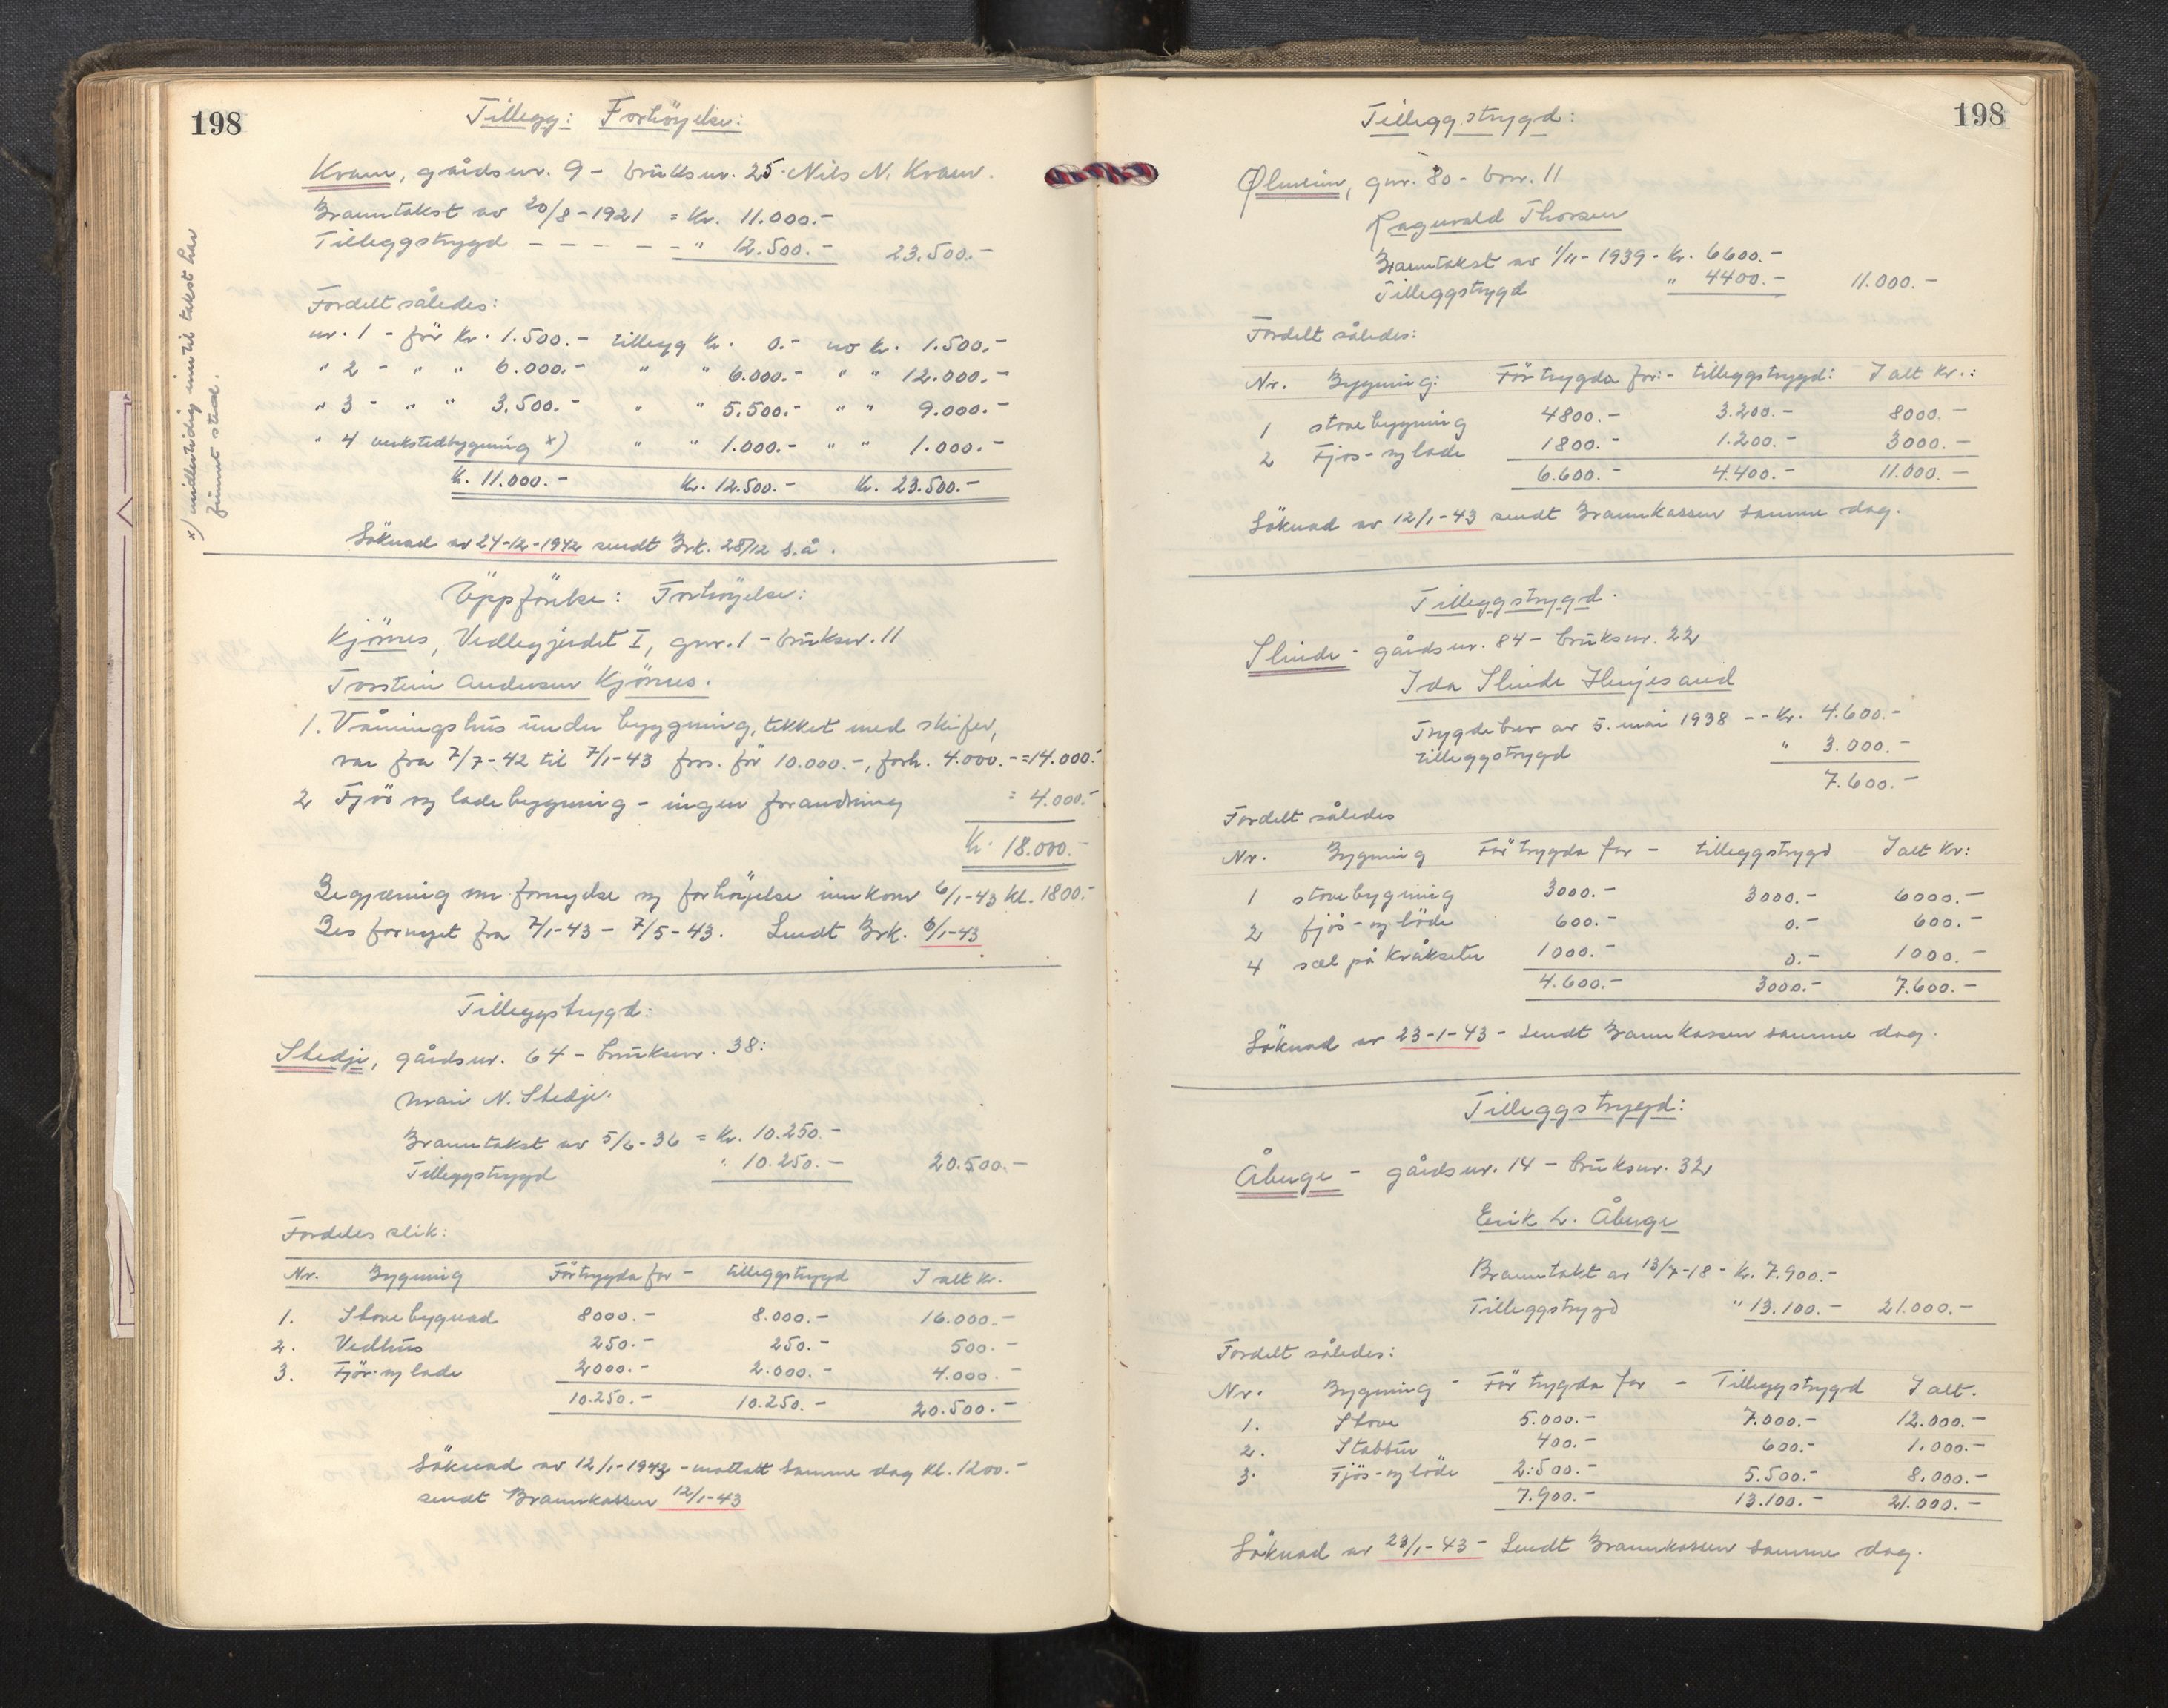 198
Tillegg: Forhöyelse:
Kvam, gårdsnr. 9 - bruksnr. 25. Nils N. Kvam.
Branntakst av 20/8-1921 = Kr. 11.000.-
Tilleggstrygd - - - - - " 12.500.- 23.500.-
Fordelt således:
nr. 1 - för kr. 1.500.- tillegg kr. 0.- no kr. 1.500.-
" 2 - " " 6.000.- " " 6.000.- " " 12.000.-
" 3 - " " 3.500.- " " 5.500.- " " 9.000.-
" 4 verkstedbygning x) " " 1.000.- " " 1.000.-
Kr. 11.000.- Kr. 12.500.- Kr. 23.500.-
Söknad av 24-12-1942 sendt Brk. 28/12 s.å.
x) midlertidig inntil takst har
funnet sted.
Oppförelse: Forhöyelse:
Kjörnes, Vedlegjerdet I, gnr. 1 - bruksnr. 11
Torstein Andersen Kjörnes.
1. Våningshus under byggning, tekket med skifer,
var fra 7/7-42 til 7/1-43 fors. för 10.000.-, forh. 4.000.- = 14.000.-
2 Fjös og ladebygning - ingen forandring = 4.000.-
Kr. 18.000.-
Begjæring om fornyelse og forhöyelse innkom 6/1-43 kl. 1800.-
Bes fornyet fra 7/1-43 - 7/5-43. Sendt Brk. 6/1-43
Tilleggstrygd:
Stedje, gårdsnr. 64 - bruksnr. 38:
N. Stedje.
Branntakst av 5/6-36 = Kr. 10.250.-
Tilleggstrygd " 10.250.- 20.500.-
Fordeles slik:
Nr. Bygning För trygda for - tilleggstrygd I alt kr.
1. Stovebygnad 8000.- 8.000.- 16.000.-
2. Vedhus 250.- 250.- 500.-
3. Fjös- og lade 2000.- 2.000.- 4.000.-
10.250.- 10.250.- 20.500.-
Söknad av 12/1-1943 - mottatt samme dag kl. 1200.-
sendt Brannkassen 12/1-43
198
Tilleggstrygd:
Ølmeim, gnr. 80 - bnr. 11
Ragnvald Thorsen
Branntakst av 1/11-1939 - Kr. 6600.-
Tilleggstrygd " 4400.- 11.000.-
Fordelt således:
Nr. Bygning: För trygda for:- tilleggstrygd: I alt Kr.:
1 stovebygning 4800.- 3.200.- 8000.-
2 Fjos- og lade 1800.- 1.200.- 3000.-
6.600.- 4.400.- 11.000.-
Söknad av 12/1-43 sendt Brannkassen samme dag.
Tilleggstrygd.
Slinde - gårdsnr. 84 - bruksnr. 22
Ida Slinde Henjesand
Trygdebrev av 5. mai 1938 - - Kr. 4.600.-
tilleggstrygd " 3.000.-
7.600.-
Fordelt således
Nr. Bygning För trygda for - tilleggstrygd I alt Kr:
1 stovebygning 3000.- 3000.- 6000.-
2 fjös- og löde 600.- 0.- 600.-
4 sæl på Kråksete 1000.- 0.- 1000.-
4.600.- 3000.- 7.600.-
Söknad av 23-1-43 - Sendt Brannkassen samme dag.
Tilleggstrygd:
Åberge - gårdsnr. 14 - bruksnr. 32
Erik L. Åberge
Branntakt av 13/7-18 - Kr. 7.900.-
Tilleggstrygd " 13.100.- 21.000.-
Fordelt således:
Nr. Bygning - För trygda for - Tilleggstrygd I alt.
1. Stove 5.000.- 7.000.- 12.000.-
2. Stabbur 400.- 600.- 1.000.-
3. Fjös- og löde 2.500.- 5.500.- 8.000.-
7.900.- 13.100.- 21.000.-
Söknad av 23/1-43 - Sendt Brannkassen samme dag.